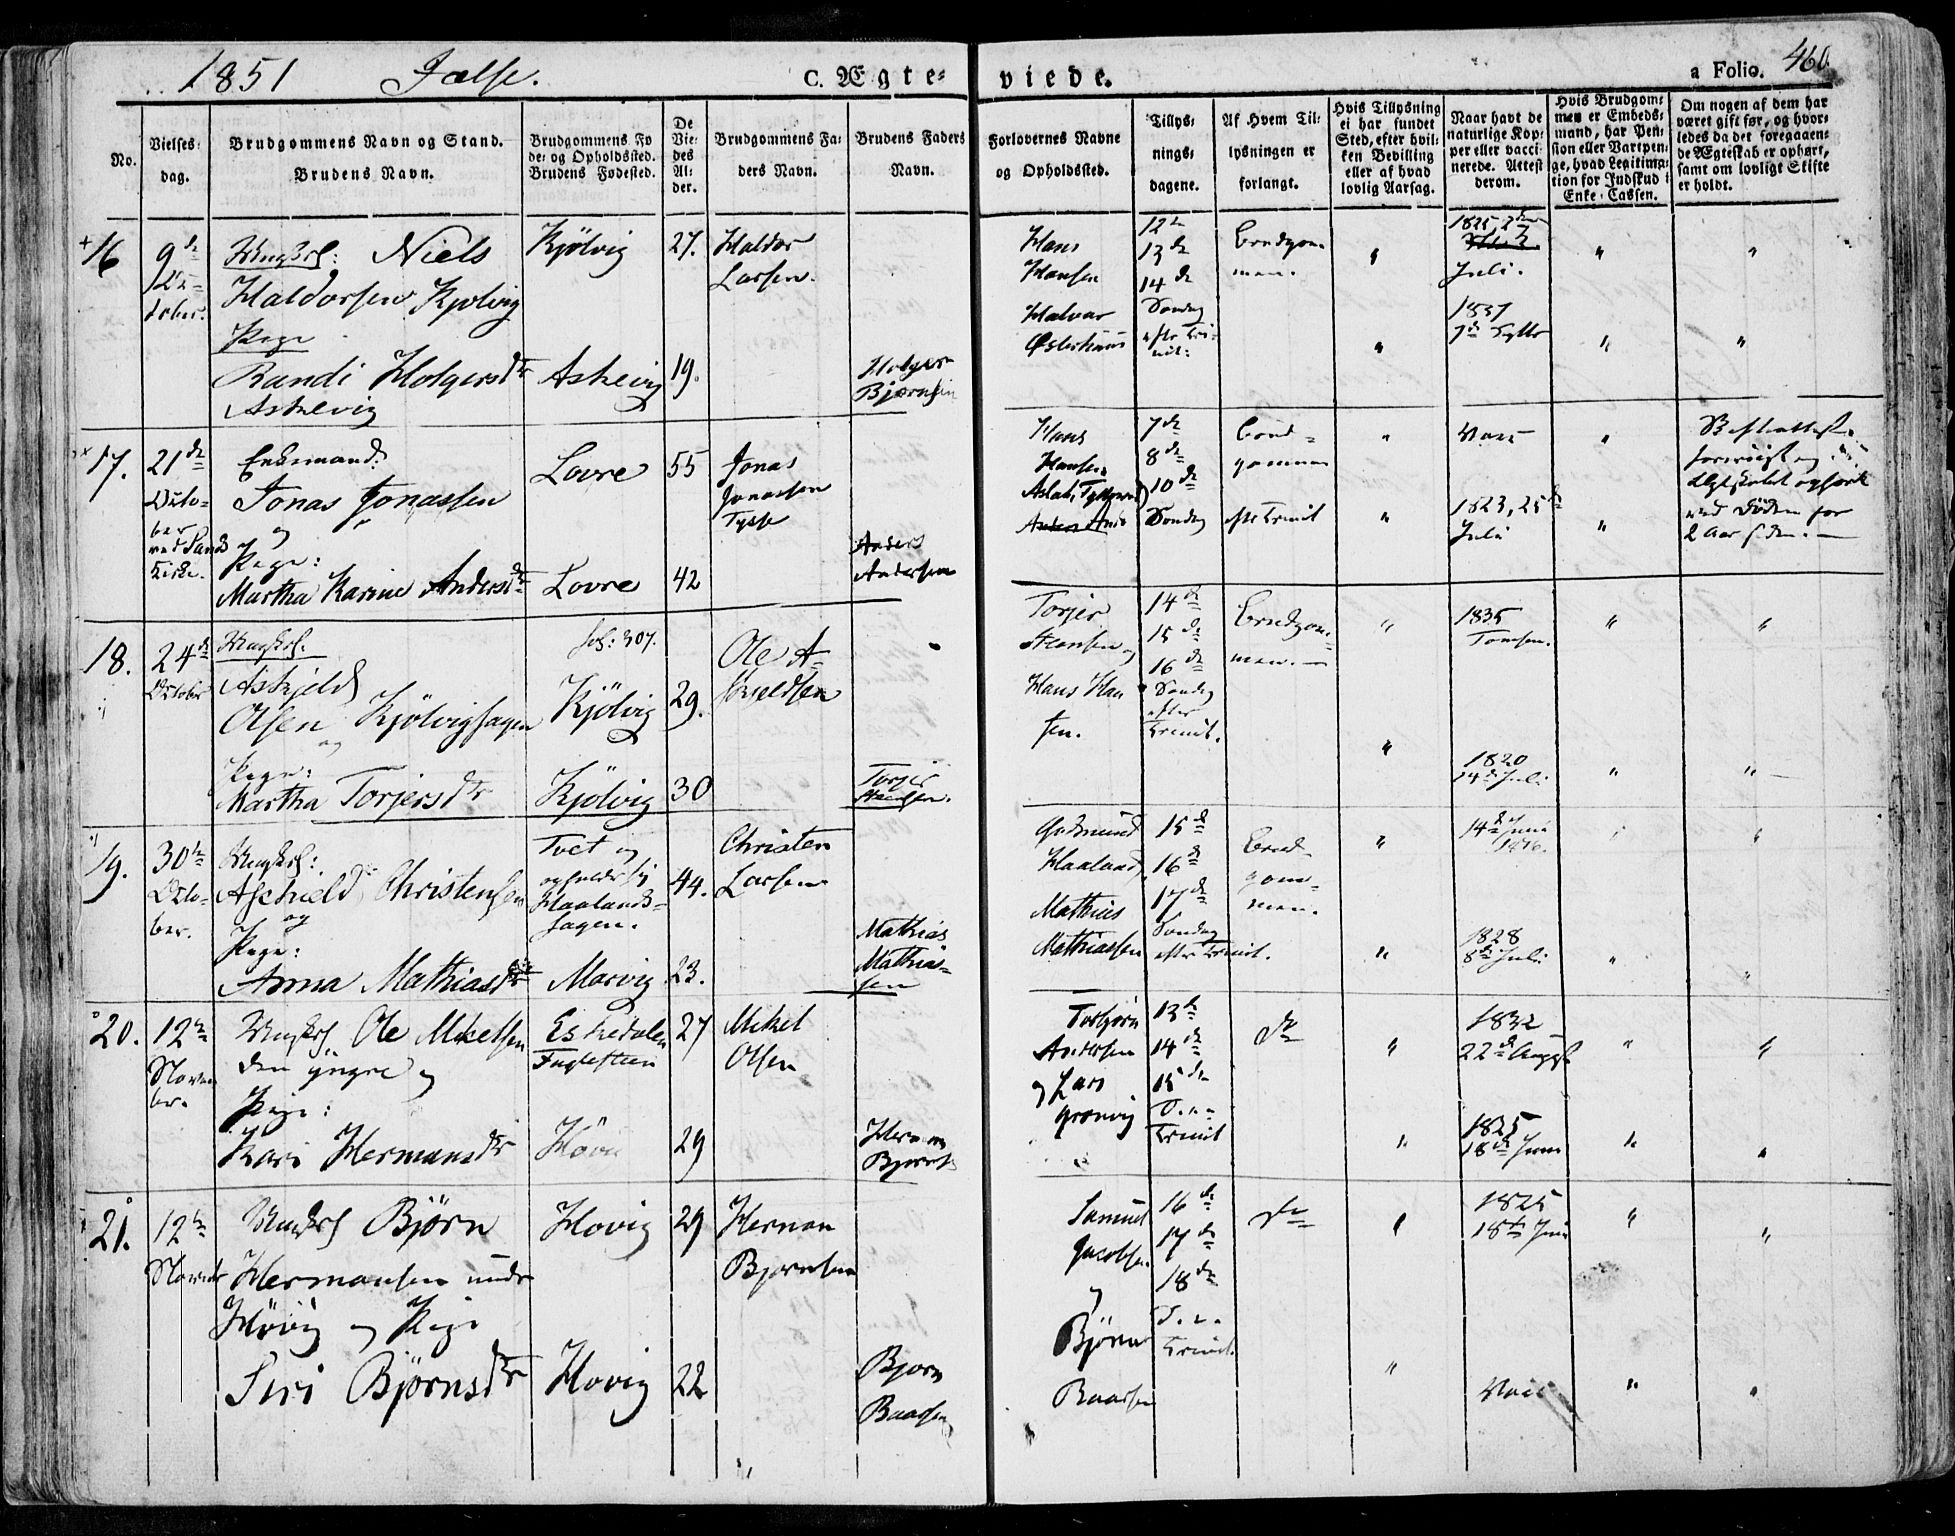 1851 Jælse. C. Ægte- viede. a Folio. 460
No.
Vielses-
dag.
Brudgommens Navn og Stand.
Brudens Navn.
Brudgommens Fø
de- og Opholdssted.
Brudens Fødested.
De
Vie-
des
Al-
der.
Brudgommens Fa-
ders Navn.
Brudens Faders
Navn.
Forlovernes Navne
og Opholdssted.
Tillys-
nings-
dagene.
Af Hvem Til-
lysningen er
forlangt.
Hvis Tillysning
ei har fundet
Sted, efter hvil-
ken Bevilling
eller af hvad
lovlig Aarsag.
Naar havt de
naturlige Kop-
per eller vacci-
nerede. Attest
derom.
Hvis Brudgom-
men er Embeds-
mand, har Pen-
sion eller Vartpen-
ge, hvad Legitima-
tion for Indskud i
Enke-Cassen.
Om nogen af dem har
været gift før, og hvor-
ledes da det foregaaen-
de Ægteskab er ophørt,
samt om lovligt Skifte
er holdt.
16
9de
October.
Ungkrl: Niels
Haldorsen Kjølvig
Pige
Randi Holgersdtr
Askevig
Kjölvig
Askevig
27.
19.
Haldor
Larsen.
Holger
Bjørnsen
Hans
Hansen
Halvar
Østerhuus
12te
13de
14de
Søndag
efter Tri-
nit:
Brudgom-
men.
1825, 2den
Juli.
1837
7de
17.
21de
Octo-
ber
ved Sands
Kirke.
Enkemand:
Jonas Jonassen
og
Pige:
Martha Karine Andersdtr
Lovre
Lovre
55
42
Jonas
Jonassen
Tysse
Anders
Andersen
Hans
Hansen
7de
8de
10de
Søndag efter Trinit
Brud-
gommen
1823, 25de
Juli
ved Døden for
2 Aar siden.
18.
24de
October
Ungkrl.
Askjeld
Olsen Kjölvighagen
og
Pige:
Martha Torjersdtr
fol: 307.
Kjölvig
Kjölvig
29.
30
Ole A-
skieldsen
Torjer
Torjer
og
Hans Han
sen.
14de
15de
16de
Søndag
efter
Trinit.
Brudgom-
men.
1835
1820
14de Juli
19.
30te
Octo-
ber.
Ungkrl:
Aschield Christensen
og
Pige:
Anna Mathiasdtr
Tvet og
opholder sig
Haalands-
hagen.
Marvig
44.
23.
Christen
Larsen
Mathias
Mathias-
sen
Gudmund
Haaland
Mathias
Mathiassen
15de
16de
17de
Søndag
efter Trinit.
Brud-
gom-
men.
14de Juni
1816.
1828
8de Juli
20.
12te
Novem
ber.
Ungkrl Ole Mikelsen
den yngre og
Pige:
Kari Hermansdtr
Eskedalen
Fuglesteen
Hövi
27
29
Mikel
Olsen
Herman
Bjørns
Torbjørn
Andersen
og Lars
Grønvig
13de
14de
15de
Trinit
do
1832
22de August
1825
18de Juni
21.
12te
Novembr
Ungkrl Björn
Hermansen
Hövig og Pige
Siri Björnsdtr
Hovig
Hovig
29
22
Herman
Bjørnsen
Bjørn
Baarsen
Samuel
Jacobsen
og
Bjørn
Baarsen
16de
17de
18de
Trinit.
do
1825
18de Juni